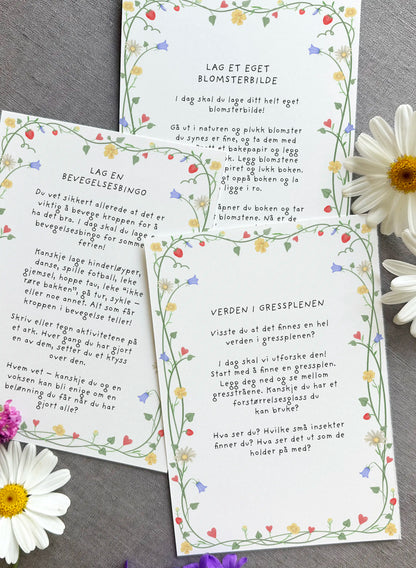 LAG ET EGET
BLOMSTERBILDE
I dag skal du lage ditt helt eget
blomsterbilde!
Gå ut i naturen og plukk blomster
du synes er fine, og ta dem med
et bakepapir og legg
bok. Legg blomstene
piret og lukk boken.
gt oppå boken og la
ligge i ro.
åpner du boken og tar
blomstene. Nå er de
LAG EN
BEVEGELSESBINGO
Du vet sikkert allerede at det er
viktig å bevege kroppen for å
ha det bra. I dag skal du lage
bevegelsesbingo for somme
ferien!
Kanskje lage hinderløyper,
danse, spille fotball, leke
gjemsel, hoppe tau, leke "ikke
røre bakken", gå tur, sykle –
eller noe annet. Alt som får
kroppen i bevegelse teller!
Skriv eller tegn aktivitetene på
et ark. Hver gang du har gjort
en av dem, setter du et kryss
over den.
Hvem vet – kanskje du og en
voksen kan bli enige om en
belønning du får når du har
gjort alle?
VERDEN I GRESSPLENEN
Visste du at det finnes en hel
verden i gressplenen?
I dag skal vi utforske den!
Start med å finne en gressplen.
Legg deg ned og se mellom
gresstråene. Kanskje du har et
forstørrelsesglass du
kan bruke?
Hva ser du? Hvilke små insekter
finner du? Hva ser det ut som de
holder på med?